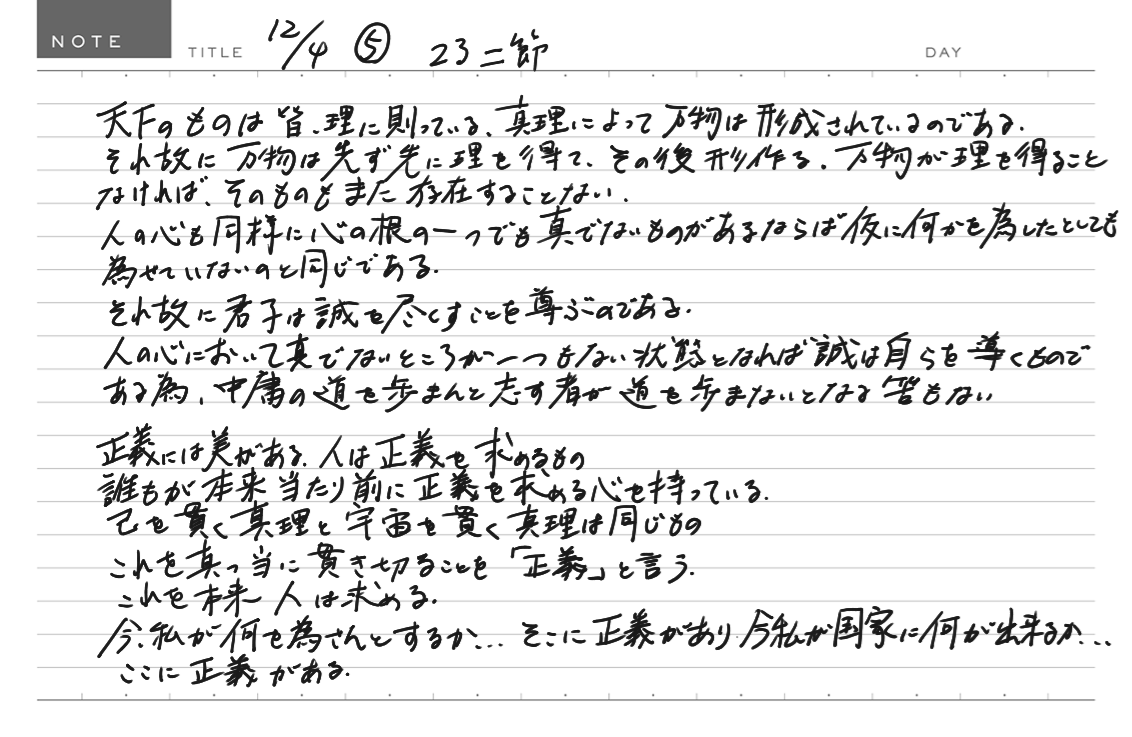 NOTE TITLE 12/4 ⑤ 23 二節 DAY
天下のものは皆、理に則っている、真理によって万物は形成されているのである.
それ故に万物は先ず先に理を得て、その後形作る.万物が理を得ること
なければ、そのものもまた存在することない.
人の心も同様に心の根の一つでも真でないものがあるならば仮に何かを為したとしても
為せていないのと同じである.
それ故に君子は誠を尽くすことを尊ぶのである.
人の心において真でないところが一つもない状態となれば誠は自らを導くもので
ある為、中庸の道を歩まんと志す者が道を歩まないとなる筈もない
正義には美がある.人は正義を求めるもの
誰もが本来当たり前に正義を求める心を持っている.
己を貫く真理と宇宙を貫く真理は同じもの
これを真っ当に貫き切ることを「正義」と言う.
これを本来人は求める.
今、私が何を為さんとするか... そこに正義があり今私が国家に何が出来るか...
ここに正義がある.